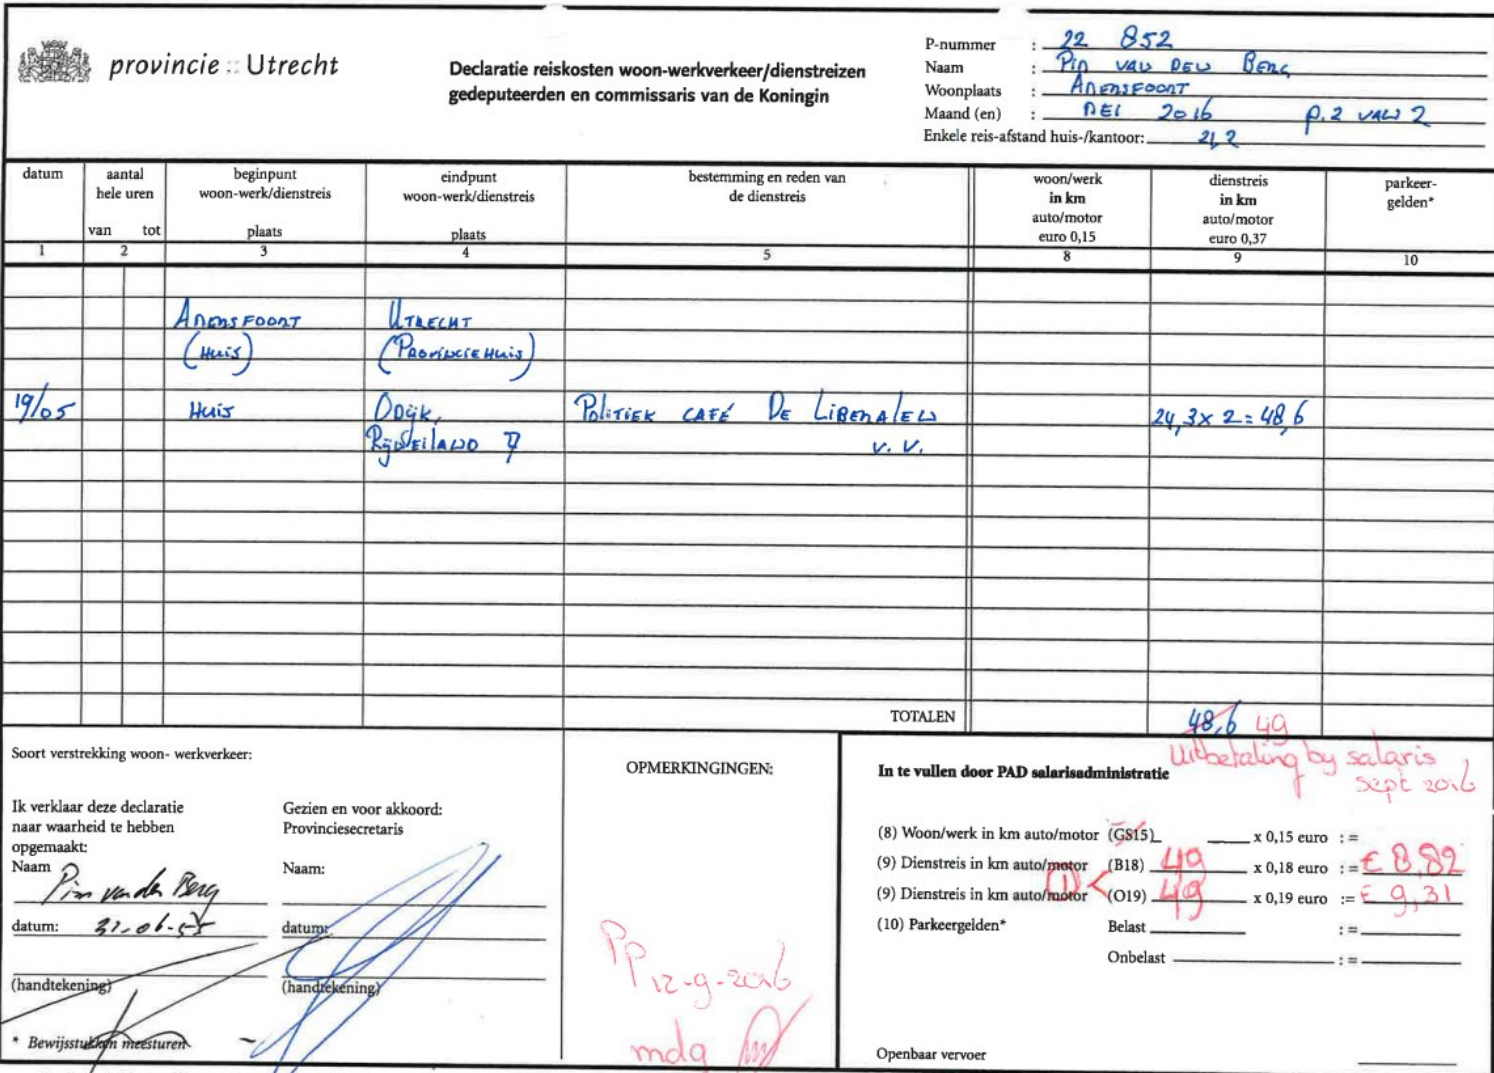 provincie :: Utrecht
Declaratie reiskosten woon-werkverkeer/dienstreizen
gedeputeerden en commissaris van de Koningin
P-nummer : 22 852
Naam : Pim van den Berg
Woonplaats : Amersfoort
Maand (en) : Mei 2016 p. 2 van 2
Enkele reis-afstand huis-/kantoor: 21,2
datum
aantal hele uren
van tot
beginpunt woon-werk/dienstreis
plaats
eindpunt woon-werk/dienstreis
plaats
bestemming en reden van de dienstreis
woon/werk in km auto/motor euro 0,15
dienstreis in km auto/motor euro 0,37
parkeer-gelden*
1 2 3 4 5 8 9 10
Amersfoort Utrecht
(Huis) (Provincie Huis)
19/05 Huis Odijk, Politiek café De Liberalen 24,3 x 2 = 48,6
Rijnseiland 7 v.v.
TOTALEN 48,6 49
Uitbetaling by salaris
sept 2016
Soort verstrekking woon- werkverkeer:
Ik verklaar deze declaratie
naar waarheid te hebben
opgemaakt:
Naam
Pim van den Berg
datum:
(handtekening)
* Bewijsstukken meesturen
Gezien en voor akkoord:
Provinciesecretaris
Naam:
datum:
(handtekening)
OPMERKINGINGEN:
Pp
12-9-2016
mdg
In te vullen door PAD salarisadministratie
(8) Woon/werk in km auto/motor (GS15) x 0,15 euro : =
(9) Dienstreis in km auto/motor (B18) 49 x 0,18 euro : = € 8,82
1 <
(9) Dienstreis in km auto/motor (O19) 49 x 0,19 euro := € 9,31
(10) Parkeergelden* Belast : =
Onbelast : =
Openbaar vervoer